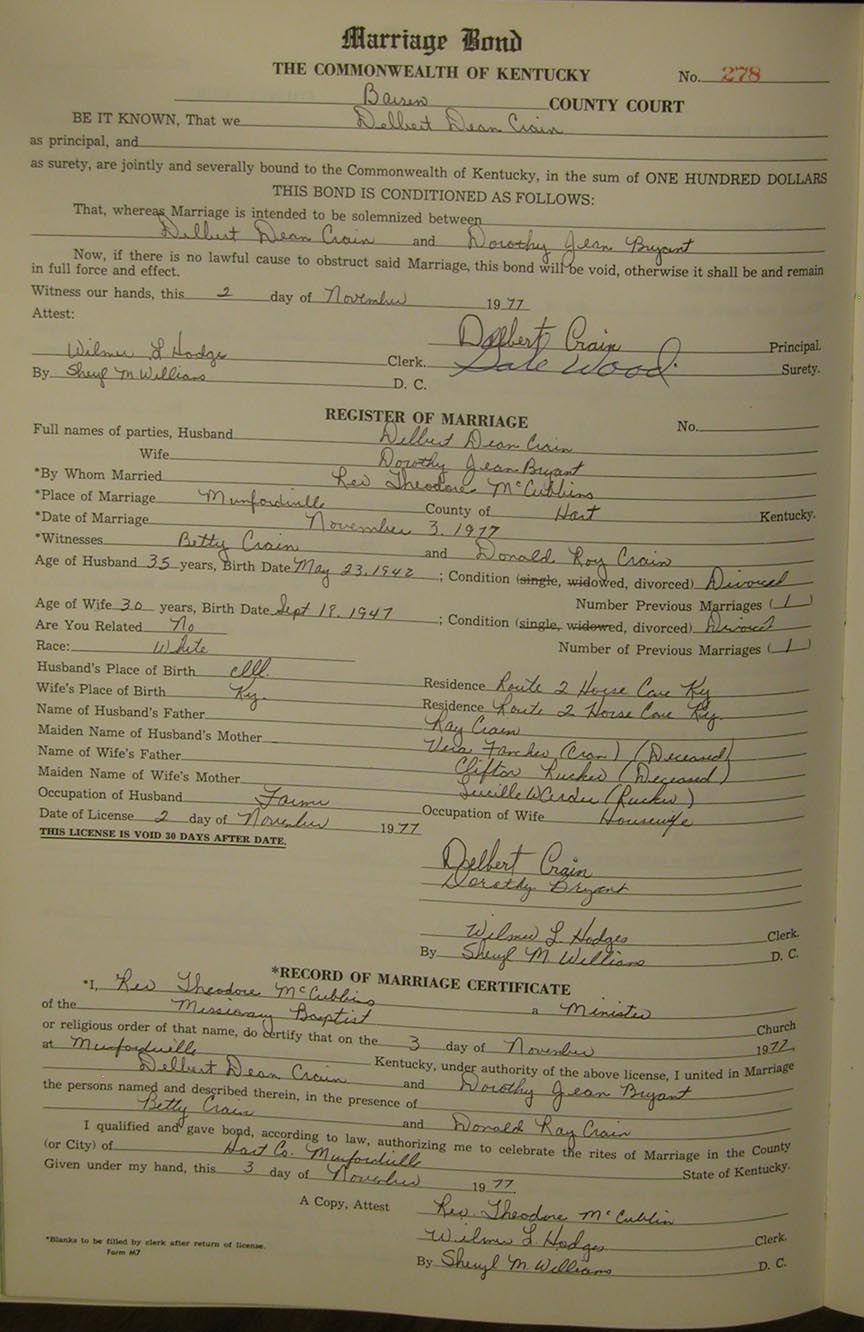 Marriage Bond
THE COMMONWEALTH OF KENTUCKY No. 278
Barren COUNTY COURT
BE IT KNOWN, That we Delbert Dean Crain
as principal, and
as surety, are jointly and severally bound to the Commonwealth of Kentucky, in the sum of ONE HUNDRED DOLLARS
THIS BOND IS CONDITIONED AS FOLLOWS:
That, whereas Marriage is intended to be solemnized between
Delbert Dean Crain and Dorothy Jean Bryant
Now, if there is no lawful cause to obstruct said Marriage, this bond will be void, otherwise it shall be and remain
in full force and effect.
Witness our hands, this 2 day of November 1977
Attest:
Delbert Crain Principal.
Wilmer L Hodges Clerk. Gale Wood Surety.
By Sheryl M. Williams D. C.
REGISTER OF MARRIAGE No.
Full names of parties, Husband Delbert Dean Crain
Wife Dorothy Jean Bryant
*By Whom Married Rev Theodore McCubbins
*Place of Marriage Munfordville County of Hart Kentucky.
*Date of Marriage November 3, 1977
*Witnesses Betty Crain and Donald Roy Crain
Age of Husband 35 years, Birth Date May 23, 1942; Condition (single, widowed, divorced) Divorced
Number Previous Marriages (1)
Age of Wife 30 years, Birth Date Sept 18, 1947; Condition (single, widowed, divorced) Divorced
Are You Related No
Number of Previous Marriages (1)
Race: White
Husband's Place of Birth Ill. Residence Route 2 Horse Cave Ky
Wife's Place of Birth Ky. Residence Route 2 Horse Cave Ky.
Name of Husband's Father Ray Crain
Maiden Name of Husband's Mother Vera (Crain) (Deceased)
Name of Wife's Father Clifton Rucker (Deceased)
Maiden Name of Wife's Mother Lucille (Rucker)
Occupation of Husband Farmer Occupation of Wife Housewife
Date of License 2 day of November 1977
THIS LICENSE IS VOID 30 DAYS AFTER DATE.
Delbert Crain
Dorothy Bryant
Wilmer L. Hodges Clerk.
By Sheryl M. Williams D. C.
*RECORD OF MARRIAGE CERTIFICATE
*I, Rev Theodore McCubbins a Minister
of the Missionary Baptist Church
or religious order of that name, do certify that on the 3 day of November 1977
at Munfordville Kentucky, under authority of the above license, I united in Marriage
Delbert Dean Crain and Dorothy Jean Bryant
the persons named and described therein, in the presence of
Betty Crain and Donald Ray Crain
I qualified and gave bond, according to law, authorizing me to celebrate the rites of Marriage in the County
(or City) of Hart Co. Munfordville State of Kentucky.
Given under my hand, this 3 day of November 1977
A Copy, Attest Rev. Theodore McCublin
Wilmer L. Hodges Clerk.
By Sheryl M. Williams D. C.
*Blanks to be filled by clerk after return of license.
Form M7